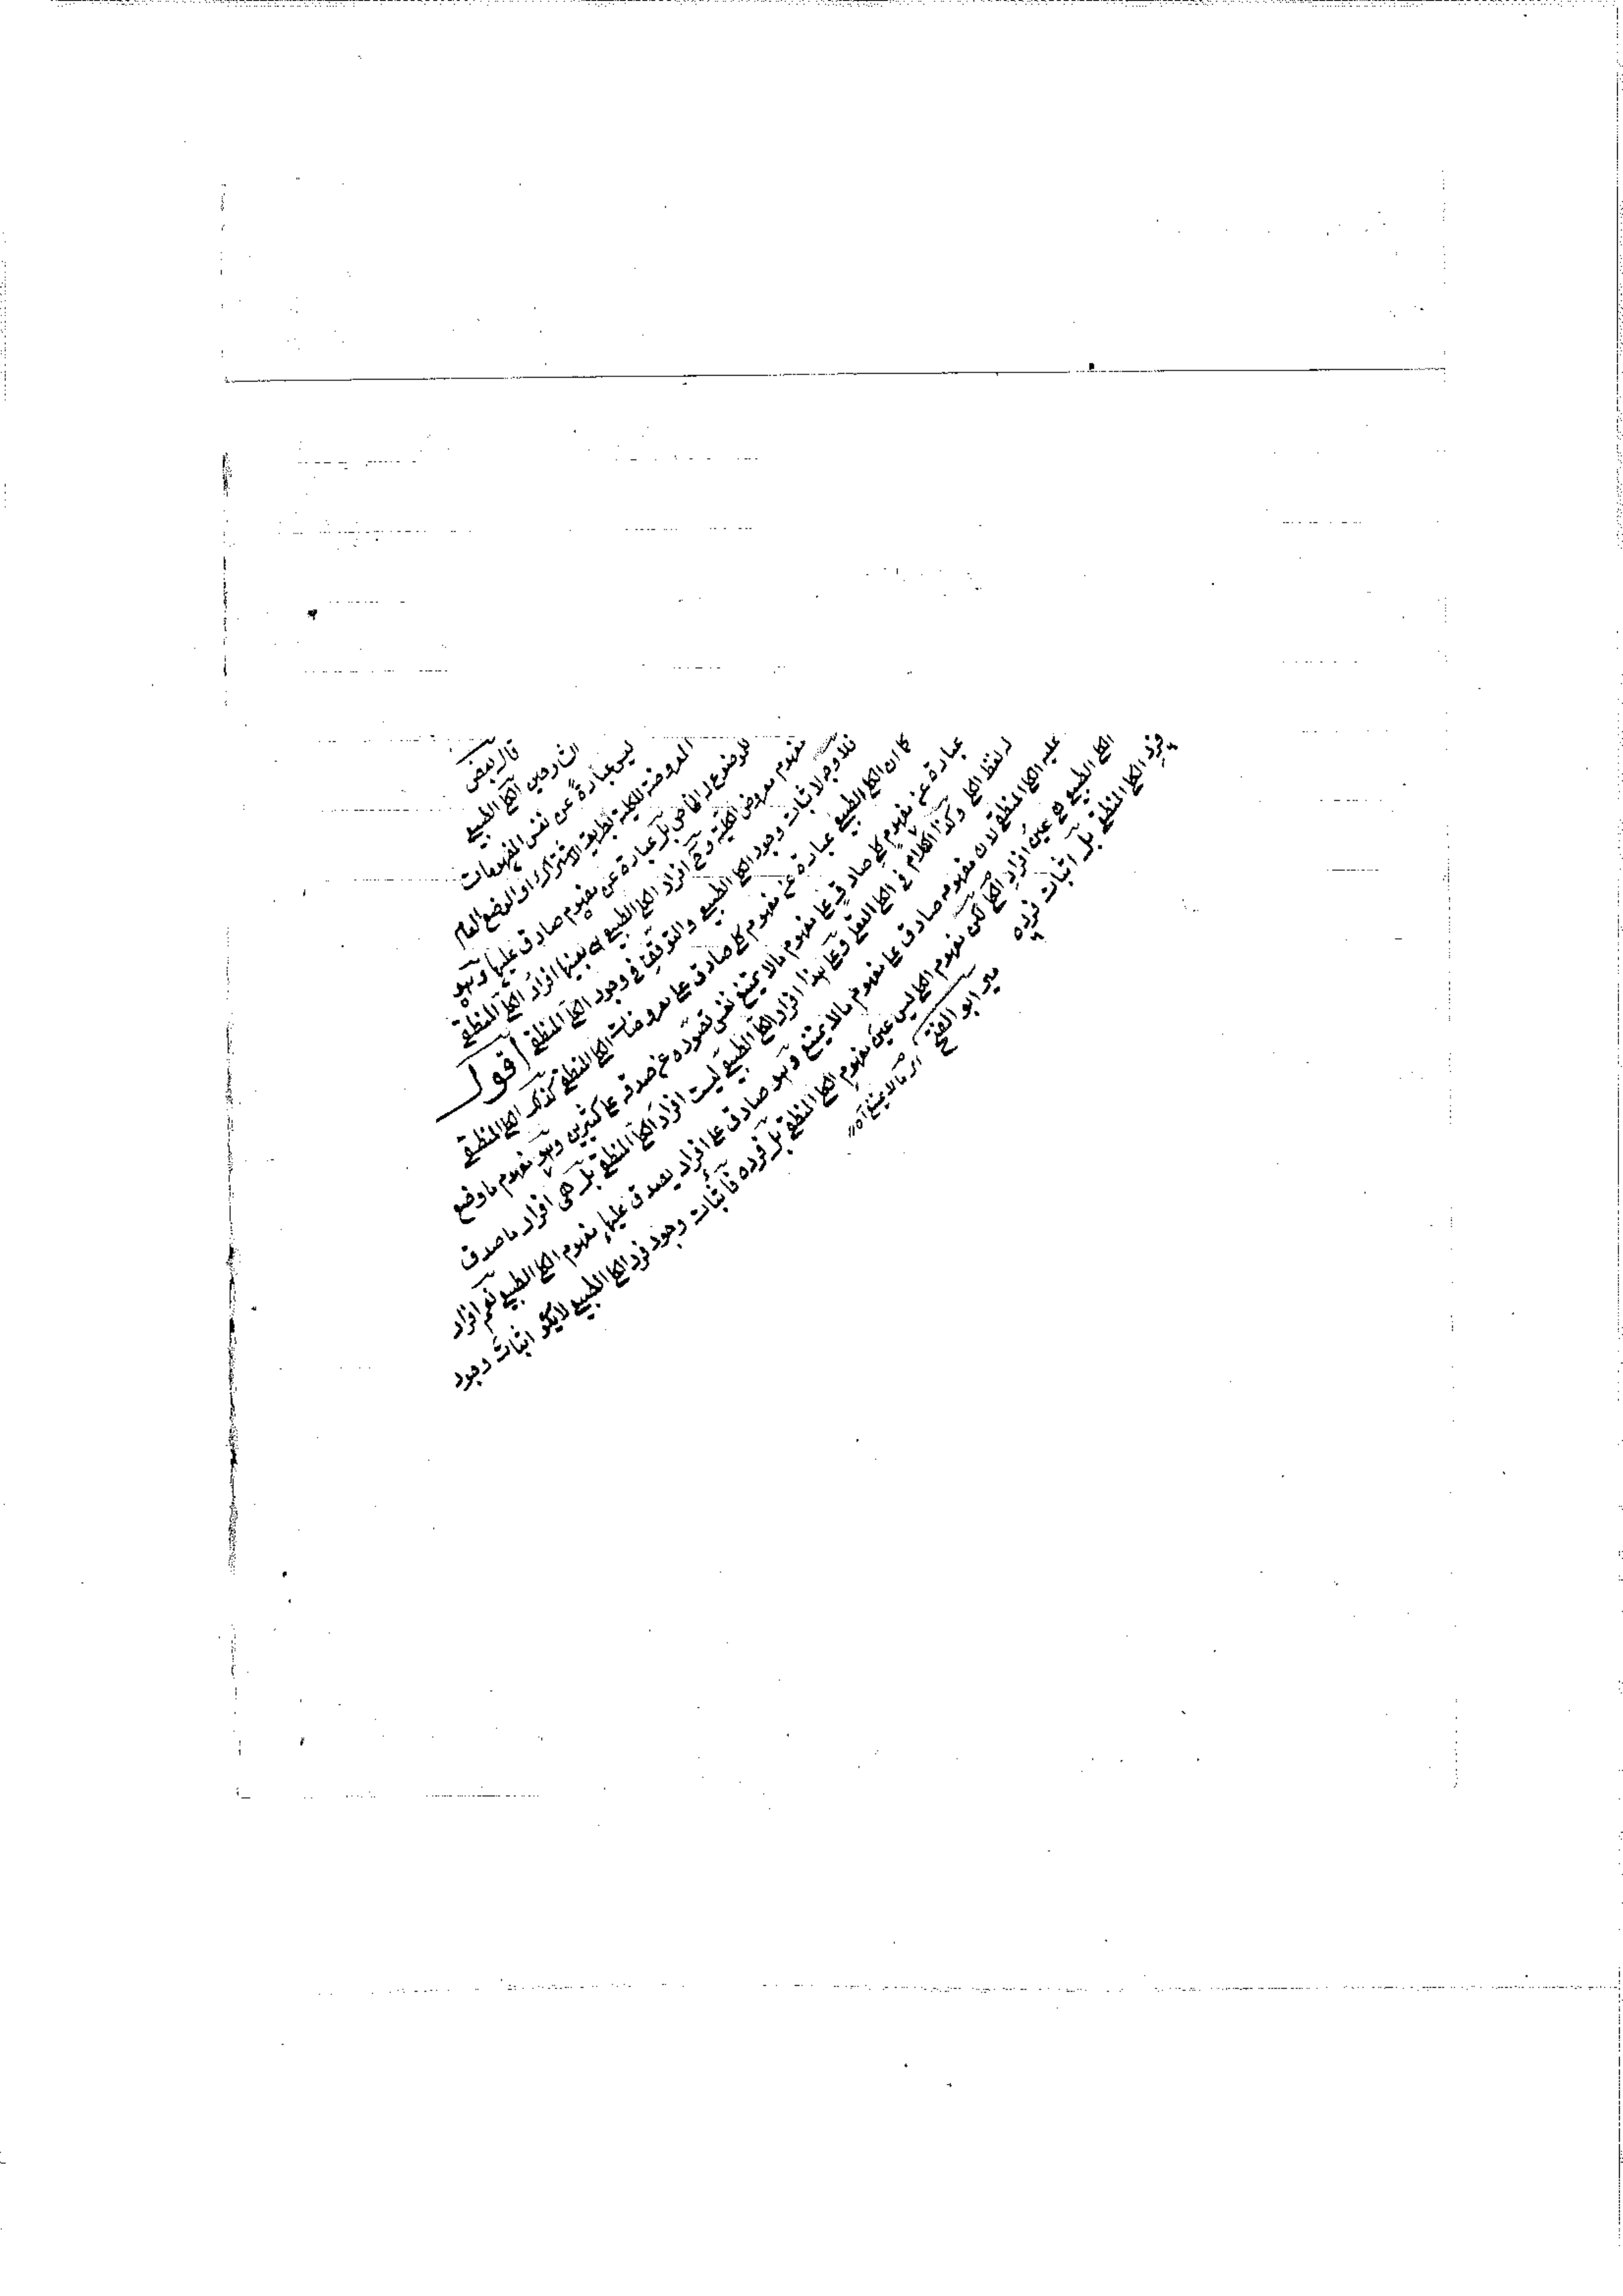 قال بعض
الشارحين الكلي الطبيعي
ليس عبارةً عن نفس المفهومات
المعروضة للكلية بطريق الاشتراك او الوضع العام
للموضوع له الخاص بل عبارة عن مفهوم صادق عليها وهو
مفهوم معروض الكلية وح افراد الكلي الطبيعي هي بعينها افراد الكلي المنطقي
فلا وجه لاثبات وجود الكلي الطبيعي والتوقف في وجود الكلي المنطقي اقول
كما ان الكلي الطبيعي عبارة عن مفهوم كلي صادق على معروضات الكلي المنطقي كذلك الكلي المنطقي
عبارة عن مفهوم كلي صادق على مفهوم ما لا يمنع نفس تصوره عن صدقه على كثيرين وهو مفهوم ما وضع
له لفظ الكلي وكذا الكلام في الكلي العقلي وعلى هذا افراد الكلي الطبيعي ليست افراد الكلي المنطقي بل هي افراد ما صدق
عليه الكلي المنطقي لان مفهومه صادق على مفهوم ما لا يمنع وهو صادق على افراد يصدق عليها مفهوم الكلي الطبيعي نعم افراد
الكلي الطبيعي هي عين افراد الكلي لكن مفهوم الكلي ليس عين مفهوم الكلي المنطقي بل فرده فاثبات وجود فرد الكلي الطبيعي لا يكون اثبات وجود
فرد الكلي المنطقي بل اثبات فرد فرده
مير ابو الفتح
اي ما لا يمنع آه